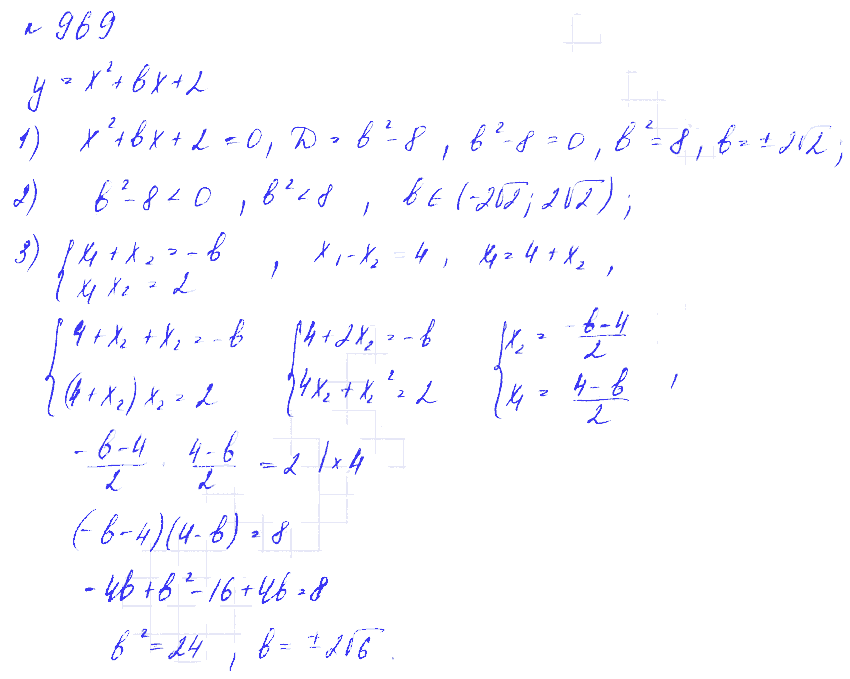 № 969
y = x² + bx + 2
1) x² + bx + 2 = 0, D = b² - 8, b² - 8 = 0, b² = 8, b = ±2√2;
2) b² - 8 < 0, b² < 8, b ∈ (-2√2; 2√2);
3) { x₁ + x₂ = -b, x₁ - x₂ = 4, x₁ = 4 + x₂,
x₁ x₂ = 2
{ 4 + x₂ + x₂ = -b { 4 + 2x₂ = -b { x₂ = (-b-4)/2
(4 + x₂) x₂ = 2 4x₂ + x₂² = 2 x₁ = (4-b)/2,
(-b-4)/2 · (4-b)/2 = 2 | × 4
(-b-4)(4-b) = 8
-4b + b² - 16 + 4b = 8
b² = 24, b = ±2√6.